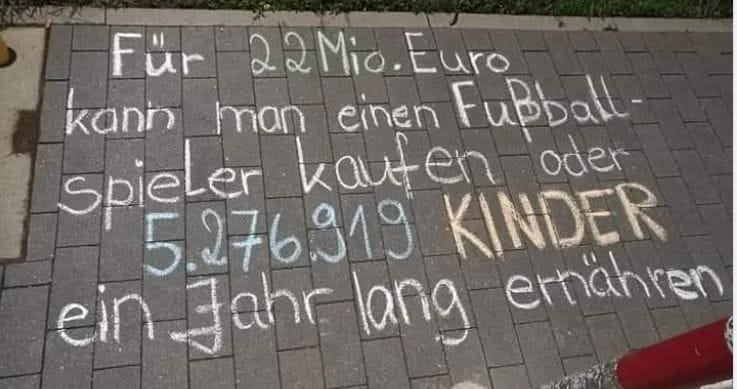 Für 22 Mio. Euro
kann man einen Fußball-
spieler kaufen oder
5.276.919 KINDER
ein Jahr lang ernähren